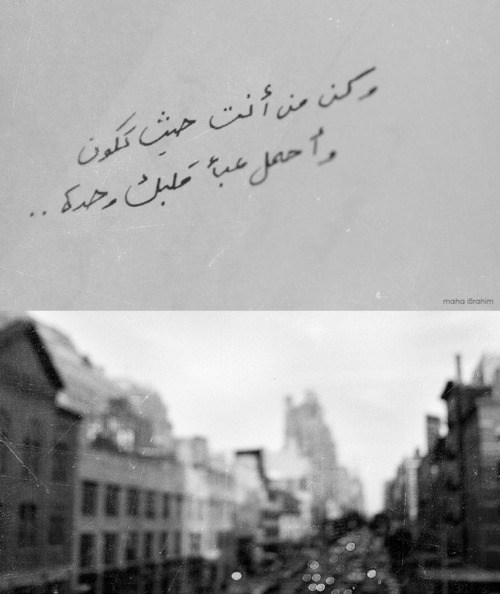 وكن من أنت حيث تكون
وأحمل عبأ قلبك وحدهُ ..
maha iBrahim